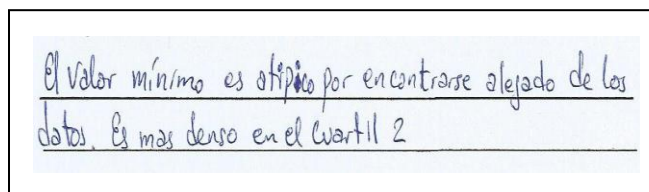 El valor mínimo es atípico por encontrarse alejado de los
datos. Es mas denso en el cuartil 2